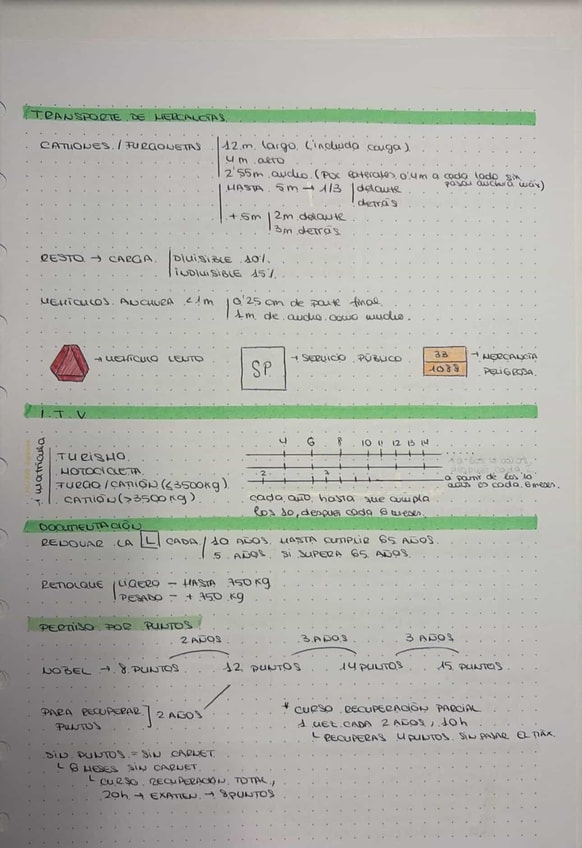 TRANSPORTE DE MERCANCÍAS
CAMIONES / FURGONETAS
12 m. largo (incluida carga)
4 m. alto
2'55 m. ancho (Por laterales 0'4m a cada lado sin pasar anchura máx)
HASTA 5m → 1/3 delante
detrás
+ 5m 2m delante
3m detrás
RESTO → CARGA DIVISIBLE 10%
INDIVISIBLE 15%
VEHÍCULOS ANCHURA <1m 0'25 cm de parte final
1 m de ancho como mucho.
→ VEHÍCULO LENTO
SP → SERVICIO PÚBLICO
33
1088
→ MERCANCÍA PELIGROSA
I.T.V
1ª MATRÍCULA
4 6 8 10 11 12 13 14
TURISMO
MOTOCICLETA
2
FURGO/CAMIÓN (≤3500 Kg)
a partir de los 10 años es cada 6 meses.
CAMIÓN (>3500 Kg) cada año hasta que cumpla
los 10, después cada 6 meses.
DOCUMENTACIÓN
RENOVAR LA L CADA 10 AÑOS HASTA CUMPLIR 65 AÑOS
5 AÑOS SI SUPERA 65 AÑOS
REMOLQUE LIGERO - HASTA 750 KG
PESADO - + 750 KG
PERMISO POR PUNTOS
2 AÑOS 3 AÑOS 3 AÑOS
NOBEL → 8 PUNTOS 12 PUNTOS 14 PUNTOS 15 PUNTOS
PARA RECUPERAR PUNTOS ] 2 AÑOS
* CURSO RECUPERACIÓN PARCIAL
1 VEZ CADA 2 AÑOS, 10h
↳ RECUPERAS 4 PUNTOS SIN PASAR EL MÁX.
SIN PUNTOS = SIN CARNET
↳ 6 MESES SIN CARNET
↳ CURSO RECUPERACIÓN TOTAL,
20h → EXAMEN → 8 PUNTOS